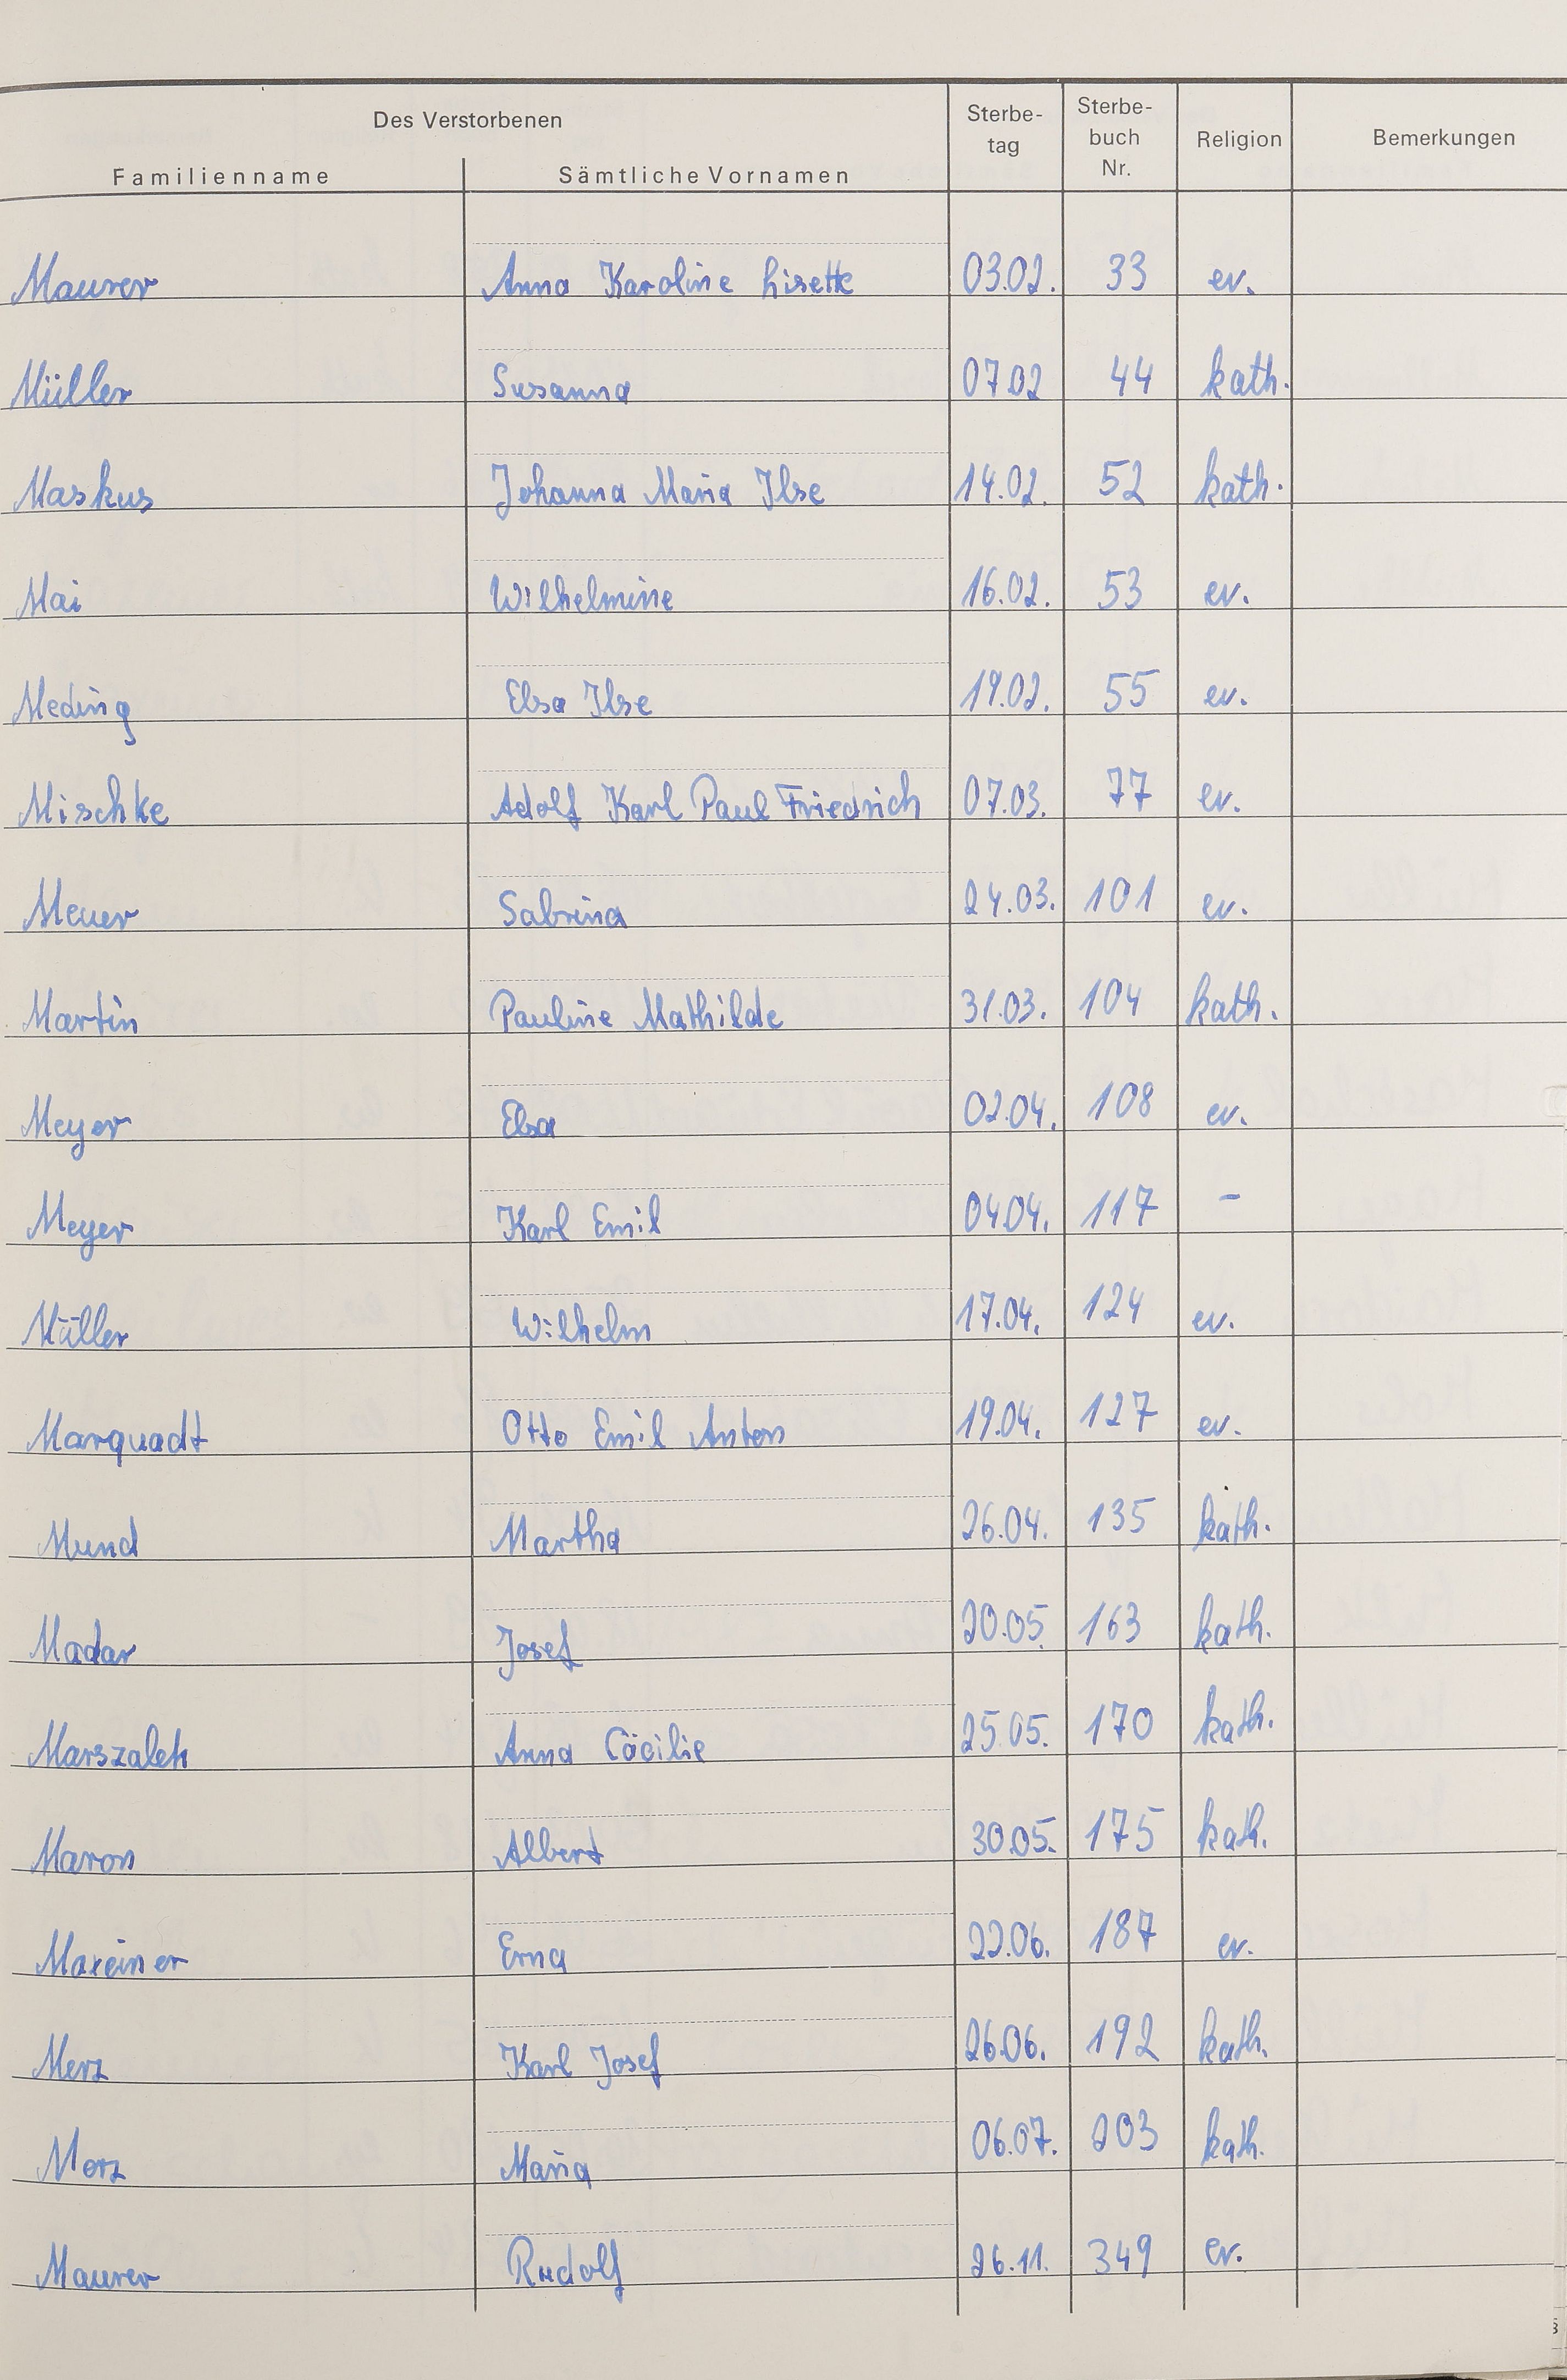 Des Verstorbenen Sterbe-tag Sterbe-buch Nr. Religion Bemerkungen
Familienname Sämtliche Vornamen
Maurer Anna Karoline Lisette 03.02. 33 ev.
Müller Susanna 07.02 44 kath.
Maskus Johanna Maria Ilse 14.02. 52 kath.
Mai Wilhelmine 16.02. 53 ev.
Meding Elsa Ilse 19.02. 55 ev.
Mischke Adolf Karl Paul Friedrich 07.03. 77 ev.
Meuer Sabrina 24.03. 101 ev.
Martin Pauline Mathilde 31.03. 104 kath.
Meyer Elsa 02.04. 108 ev.
Meyer Karl Emil 04.04. 117 –
Müller Wilhelm 17.04. 124 ev.
Marquadt Otto Emil Anton 19.04. 127 ev.
Mund Martha 26.04. 135 kath.
Madar Josef 20.05. 163 kath.
Marszalek Anna Cäcilie 25.05. 170 kath.
Maron Albert 30.05. 175 kath.
Maxeiner Erna 22.06. 187 ev.
Merz Karl Josef 26.06. 192 kath.
Merz Maria 06.07. 203 kath.
Maurer Rudolf 26.11. 349 ev.